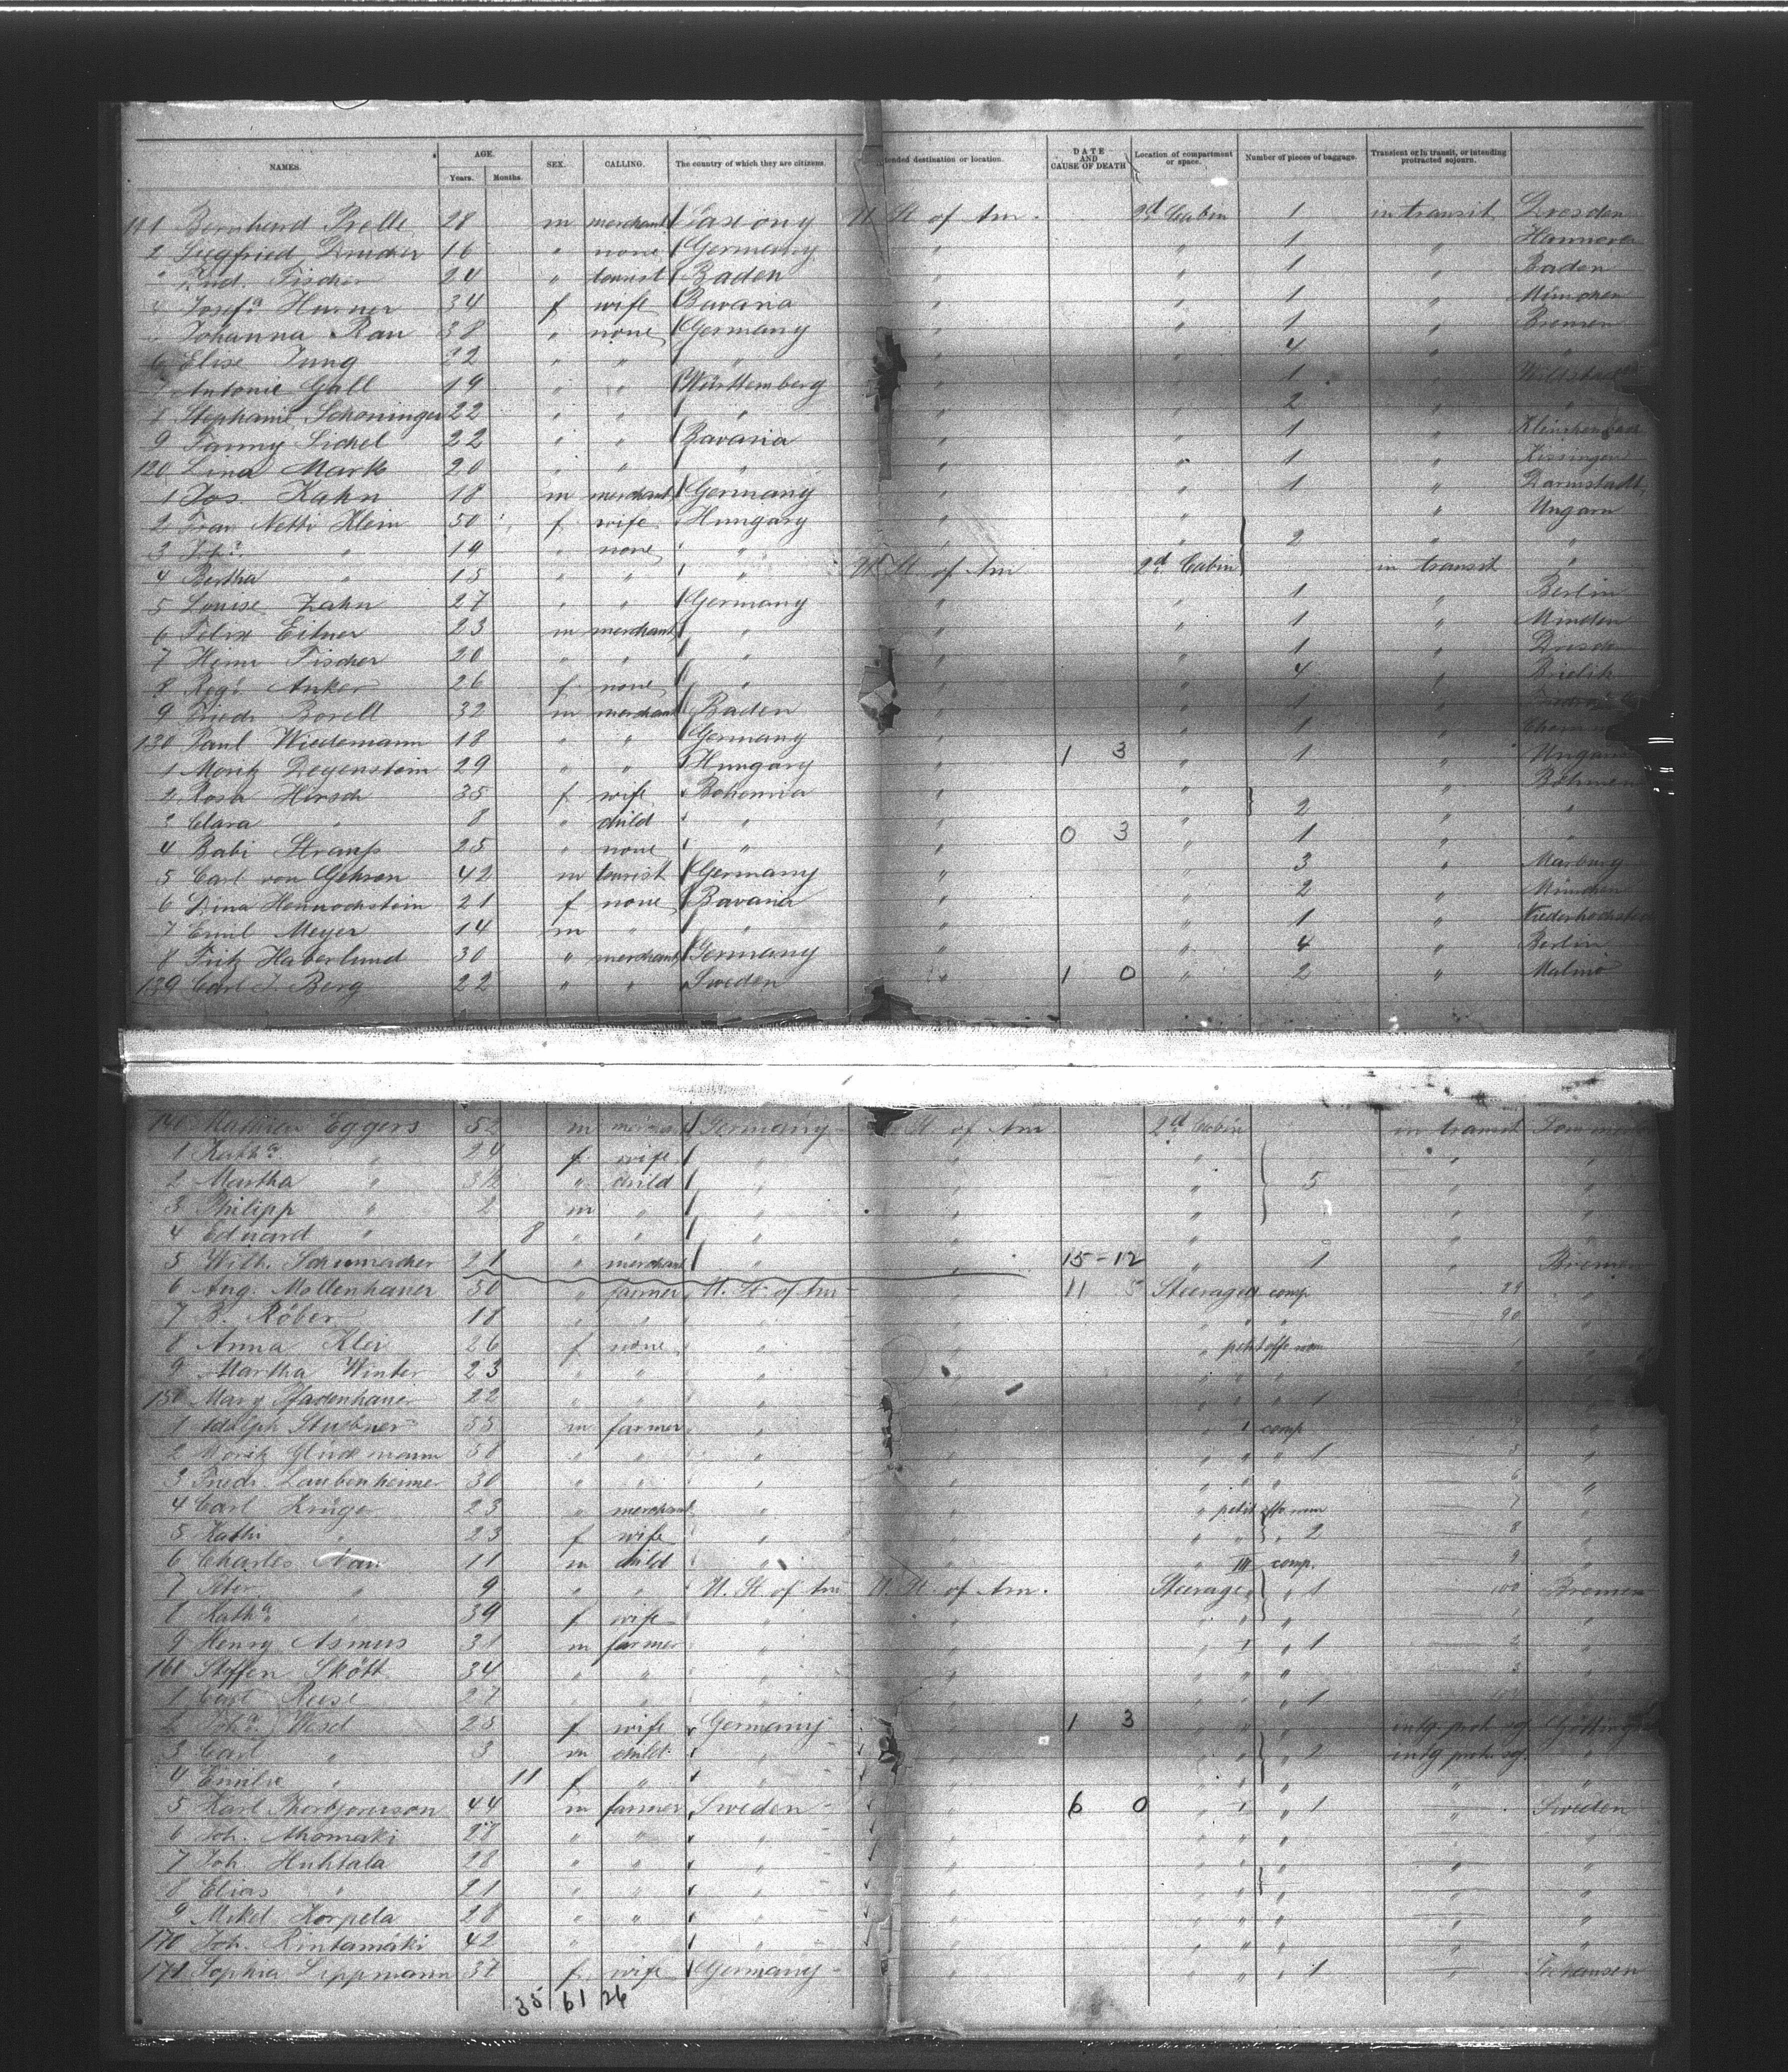 NAMES. AGE. Years. Months. SEX. CALLING. The country of which they are citizens. tended destination or location. DATE AND CAUSE OF DEATH Location of compartment or space. Number of pieces of baggage. Transient or in transit, or intending protracted sojourn.
111 Bernhard Prelle 28 m merchant Saxony U. St of Am. 2d Cabin 1 in transit Dresden
2 Siegfried Drucker 16 " none Germany " " 1 " Hannover
" Rud. Fischer 24 " tourist Baden " " 1 " Baden
4 Josefa Hurner 34 f wife Bavaria " " 1 " München
Johanna Rau 38 " none Germany " " 1 " Bremen
6 Elise Jung 22 " " " " " 4 " "
7 Antonie Gall 19 " " Württemberg " " 1 "
8 Stephanie Schoninger 22 " " " " " 2 " "
9 Fanny Sichel 22 " " Bavaria " " 1 "
120 Lina Mark 20 " " " " " 1 " Kissingen
1 Jos. Kahn 18 m merchant Germany " " 1 " Darmstadt
2 Frau Netti Klein 50 f wife Hungary " " " Ungarn
3 Joha " 19 " none " " " 2 " "
4 Bertha " 15 " " " U. St of Am 2d Cabin in transit "
5 Louise Zahn 27 " " Germany " " 1 " Berlin
6 Felix Eitner 23 m merchant " " " 1 " Minden
7 Heinr Fischer 20 " " " " " 1 "
8 Rega Anker 26 f none " " " 4 "
9 Friedr Borell 32 m merchant Baden " " 1 "
130 Paul Wiedemann 18 " " Germany " " 1 "
1 Moritz Degenstein 29 " " Hungary " 1 3 " 1 " Ungarn
2 Rosa Hirsch 35 f wife Bohemia " " " Böhmen
3 Clara " 8 " child " " " 2 " "
4 Babi Strauss 25 " none " " 0 3 " 1 "
5 Carl von Gehren 42 m tourist Germany " " 3 " Marburg
6 Dina Hennochstein 21 f none Bavaria " " 2 " München
7 Emil Meyer 14 m " " " " 1 "
8 Fritz Haberlund 30 " merchant Germany " " 4 " Berlin
139 Carl J. Berg 22 " " Sweden " 1 0 " 2 " Malmö
140 Eggers 52 m Germany St of Am 2d Cabin in transit
1 Katha " 24 f wife " " " " "
2 Martha " 3½ " child " " " 5 " "
3 Philipp " 2 m " " " " " "
4 Eduard " 8 " " " " " " "
5 Wilh. Schumacher 21 " merchant " " 15-12 " 1 " Bremen
6 Aug. Mollenhauer 50 " farmer U. St of Am " 11 5 Steerage comp 89 "
7 B. Röber 18 " " " " " " 90 "
8 Anna Klei 26 f none " " " petit offr room 1 "
9 Martha Winter 23 " " " " " "
150 Mary 22 " " " " " " 1 "
1 Adolph Stuckner 55 m farmer " " " I comp "
2 Moritz 38 " " " " " " " 1 "
3 Friedr Laubenheimer 30 " " " " " " 6 "
4 Carl Krüger 23 " merchant " " " petit offr room 7 "
5 Kathi " 23 f wife " " " " 2 8 "
6 Charles 11 m child " " " III comp. 9 "
7 Peter " 9 " " U. St of Am U. St of Am. Steerage " 1 100 Bremen
8 Katha " 39 f wife " " " " " 1 "
9 Henry Asmus 31 m farmer " " " I " 1 2 "
160 Steffen Skött 34 " " " " " " " 3 "
1 Carl Reese 27 " " " " " " 1 "
2 Joha 25 f wife Germany " 1 3 " " intg prot. soj.
3 Carl " 3 m child " " " " 2 intg prot. soj. "
4 Emilie " 11 f " " " " " " "
5 Karl Thorbjornson 44 m farmer Sweden " 6 0 " I " 1 " Sweden
6 Joh. 28 " " " " " " " " "
7 Joh Huhtala 28 " " " " " " " " "
8 Elias " 21 " " " " " " " " "
9 Mikel Korpela 28 " " " " " " " " "
170 Joh. Rintamäki 42 " " " " " " " " "
171 Sophia Lippmann 37 f wife Germany " " " 1 "
35 61 26